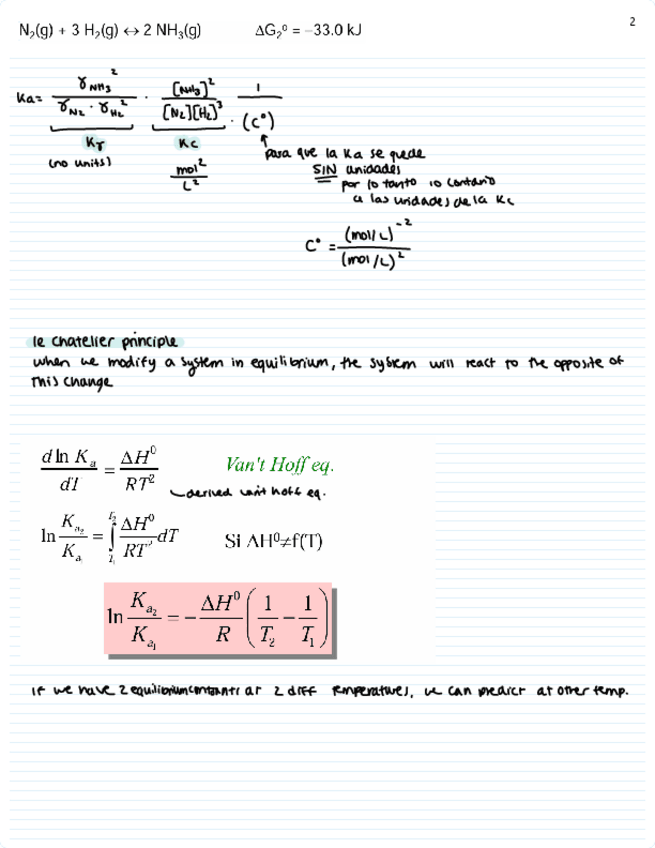 2
N₂(g) + 3 H₂(g) ↔ 2 NH₃(g) ΔG₂⁰ = −33.0 kJ
Ka = γNH₃² / γN₂ · γH₂² · [NH₃]² / [N₂][H₂]³ · 1 / (C°)
Kγ Kc
(no units) mol² / L²
para que la Ka se quede
SIN unidades
por lo tanto lo contario
a las unidades de la Kc
C° = (mol/L)⁻² / (mol/L)²
le chatelier principle
when we modify a system in equilibrium, the system will react to the opposite of
this change
d ln Ka / dT = ΔH⁰ / RT² Van't Hoff eq.
derived van't hoff eq.
ln Ka₂ / Ka₁ = ∫T₁T₂ ΔH⁰ / RT² dT Si ΔH⁰≠f(T)
ln Ka₂ / Ka₁ = − ΔH⁰ / R (1 / T₂ − 1 / T₁)
if we have 2 equilibrium constants at 2 diff temperatures, we can predict at other temp.